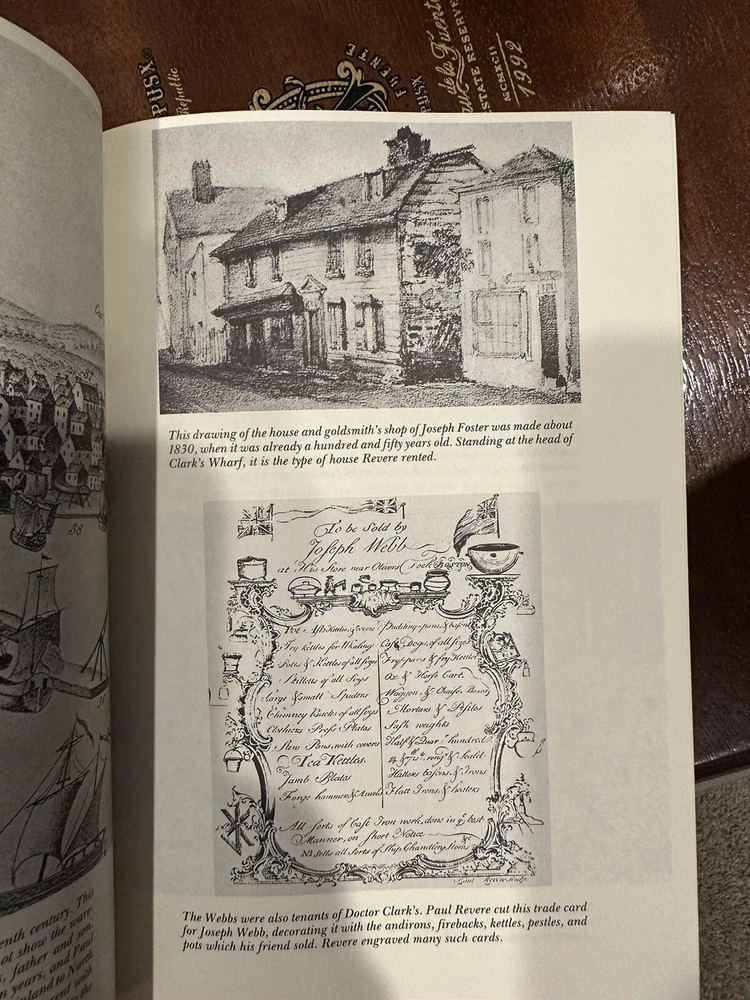 PUSX
Republic
FUENTE
PUSX
de la Fuente
ESTATE RESERVE
MCMXCII
1992
This drawing of the house and goldsmith's shop of Joseph Foster was made about
1830, when it was already a hundred and fifty years old. Standing at the head of
Clark's Wharf, it is the type of house Revere rented.
38
To be Sold by
Joseph Webb
at His Store near Olivers Dock Boston
Pot Ash Kettles,
Pudding-pans, &
Try kettles for Whaling
Dogs, of all sizes
Potts & Kettles of all sizes
Fry-pans & fry Kettles
Skillets of all Sizes
Ox & Horse Cart,
Large & small Spiders
Waggon & Chaise Boxes
Chimney Backs of all sizes
Mortars & Pestles
Clothiers Press Plates
Sash weights
Stew Pans, with covers
Half & Quar.r hundred
Tea Kettles.
Jamb Plates
Hatters basons, & Irons
Forge hammers, & Anvils
Flatt Irons, & heaters
All sorts of Cast Iron work, done in ye best
Manner, on short Notice
NB Sells all Sorts of Ship Chandlery Stores &c
Paul Revere Sculp
The Webbs were also tenants of Doctor Clark's. Paul Revere cut this trade card
for Joseph Webb, decorating it with the andirons, firebacks, kettles, pestles, and
pots which his friend sold. Revere engraved many such cards.
enth century. This
ot show the
, father and son,
n years, and Paul
inland to North
rent with
the